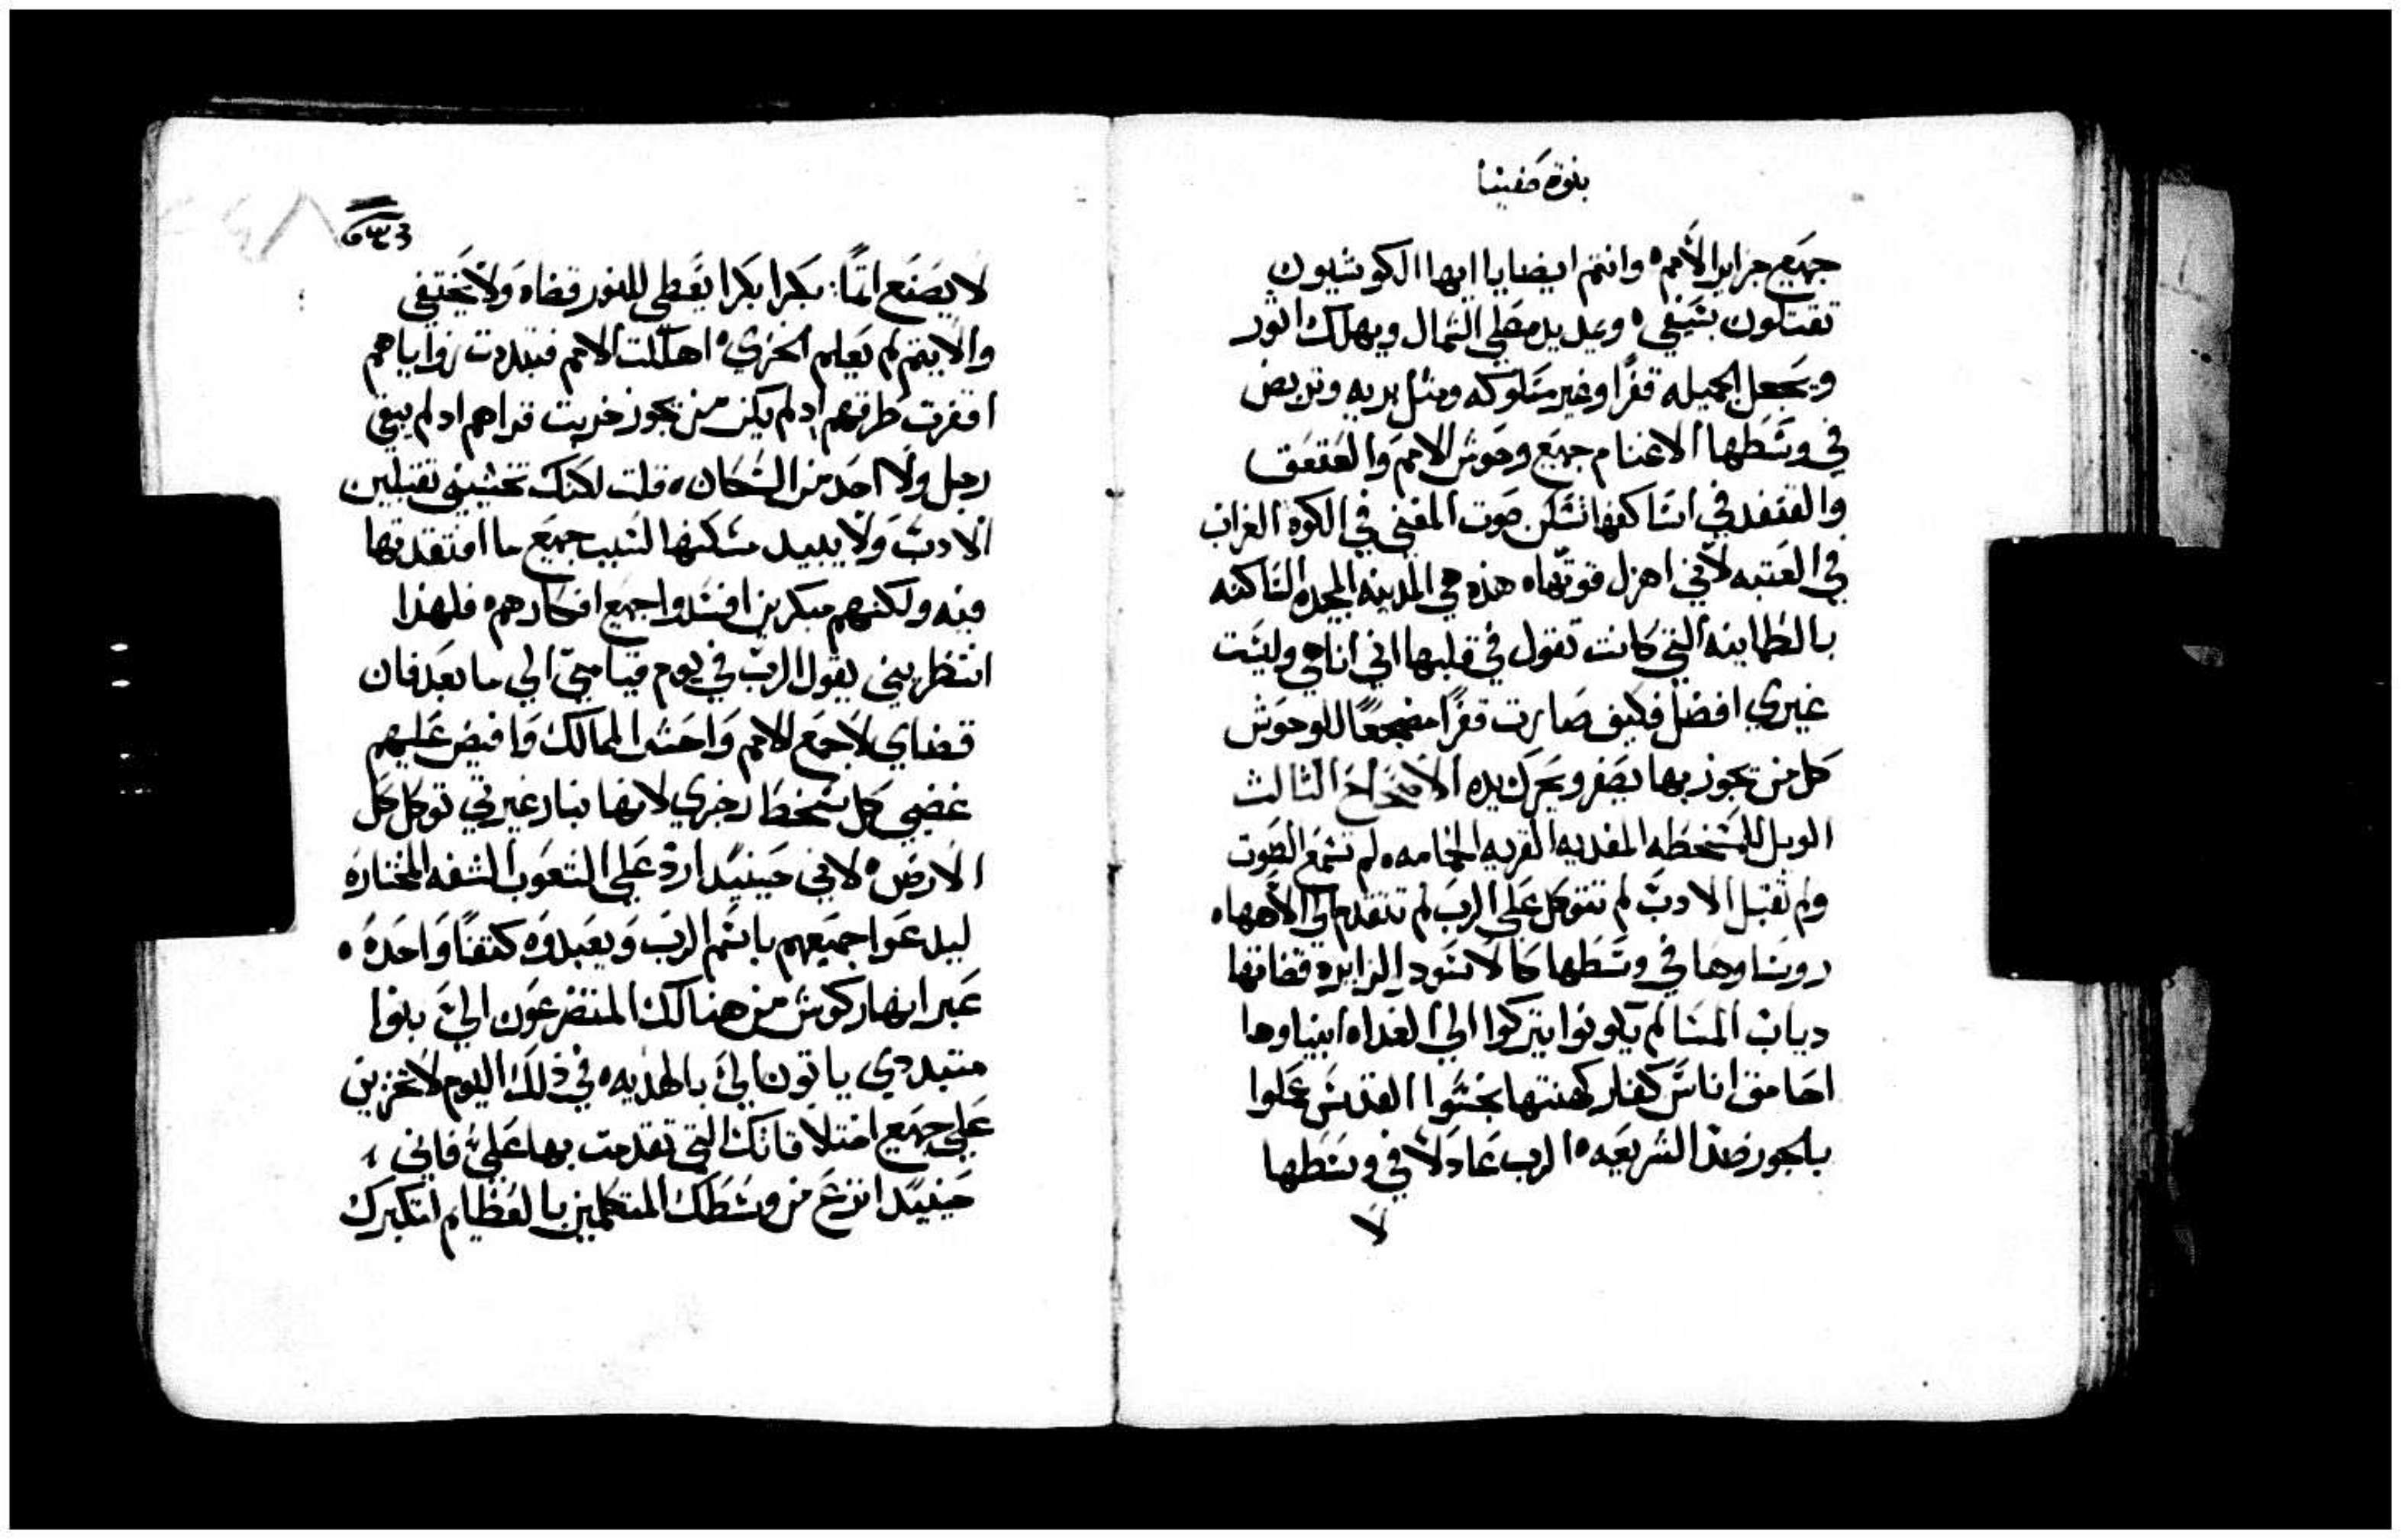 بنوة صفينا
جميع جزاير الأمم ٥ وانتم ايضا يا ايها الكوشيون
تقتلون بسيفي ٥ ويمد يده علي الشمال ويهلك اثور
ويجعل الجميله قفرًا وغير مسلوكه ومثل بريه وتربض
في وسطها الاغنام جميع وحوش الامم والعقعق
والقنفد في اساكفها تسكن صوت المغني في الكوه الغراب
في العتبه لاني اهزل قوتها ٥ هذه هي المدينه المجده الساكنه
بالطمانينه التي كانت تقول في قلبها اني انا هي وليست
غيري افضل فكيف صارت قفرًا مضجعًا للوحوش
كل من يجوز بها يصفر ويحرك يده الاصحاح الثالث
الويل للمسخطه المفديه القريه الحمامه ٥ لم تسمع الصوت
ولم تقبل الادب لم تتوكل علي الرب لم تتقدم الي الاهها ٥
روساوها في وسطها كالاسود الزايره قضاتها
دياب المسا لم يكونوا يتركوا الي الغداه انبياوها
احامق اناس كفار كهنتها نجسوا القدس عملوا
بالجور ضد الشريعه ٥ الرب عادلاً في وسطها
لا
لا يصنع اثمًا: بكرا بكرا يعطي للنور قضاه ولا يختفي
والاثيم لم يعلم الخزي ٥ اهلكت الامم فتبددت زواياهم
اقفرت طرقهم اد لم يكن من يجوز خربت قراهم اد لم يبقي
رجل ولا احد من السكان ٥ قلت لكنك تخشيني تقبلين
الادب ولا يبيد مسكنها لسبب جميع ما افتقدتها
فيه ولكنهم مبكرين افسدوا جميع افكارهم ٥ فلهذا
انتظريني يقول الرب في يوم قيامتي الي ما بعد فان
قضاي لاجمع الامم واحشر الممالك وافيض عليهم
غضبي كل سخط رجزي لانها بنار غيرتي توكل كل
الارض ٥ لاني حينيدًا ارد علي الشعوب الشفه المختاره
ليدعوا جميعهم باسم الرب ويعبدوه كتفًا واحده ٥
عبر انهار كوش من هنالك المتضرعون الي بنوا
متبددي ياتون الي بالهديه ٥ في ذلك اليوم لا تخزين
علي جميع اختلاقاتك التي تقدمت بها علي فاني
حينيدًا انزع من وسطك المتكلمين بالعظايم لتكبرك